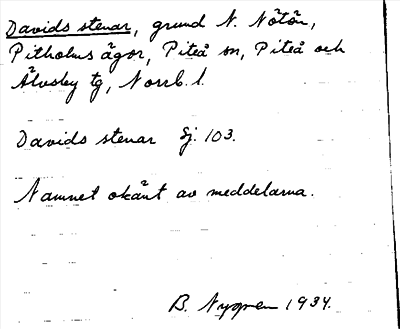 Davids stenar, grund N. Nötön,
Pitholms ägor, Piteå sn, Piteå och
Älvsby tg, Norrb. l.
Davids stenar Sj. 103.
Namnet okänt av meddelarna.
B. Nygren 1934.